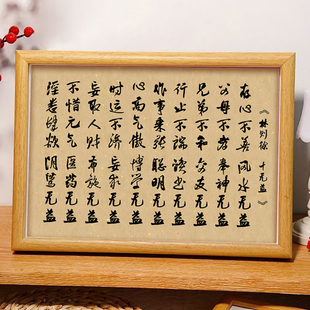 《林则徐 十无益》
存心不善 风水无益
父母不孝 奉神无益
兄弟不和 交友无益
行止不端 读书无益
作事乖张 聪明无益
心高气傲 博学无益
时运不济 妄求无益
妄取人财 布施无益
不惜元气 医药无益
淫恶肆欲 阴骘无益